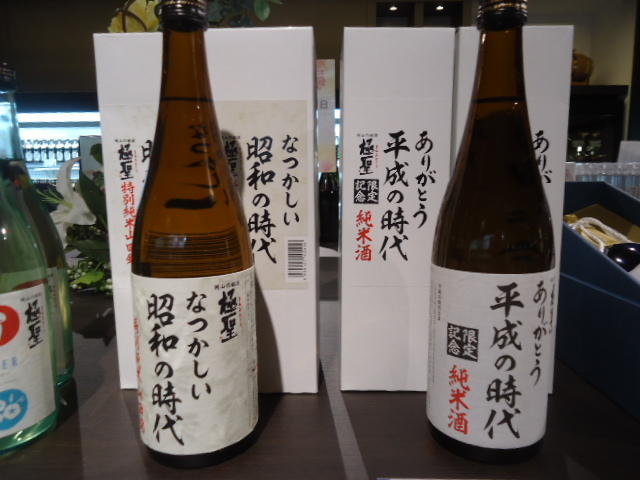 極聖
なつかしい
昭和の時代
極聖
特別純米山田錦
昭
極聖
なつかしい
昭和の時代
ありがとう
平成の時代
極聖
限定
記念
純米酒
ありが
ありがとう
平成の時代
限定
記念
純米酒
極聖